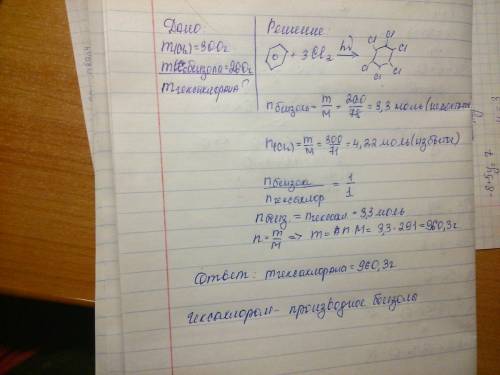 Дано:
m(Cl₂)=300г
m бензола=200г
m гексахлорана
Решение:
+ 3Cl₂ hν →
Cl Cl Cl Cl Cl Cl
n бензола = m/M = 200/78 = 3,3 моль (недостаток)
n(Cl₂) = m/M = 300/71 = 4,22 моль (избыток)
n бензол / n гексахлор = 1/1
n бенз. = n гексахл. = 3,3 моль
n = m/M => m = n M = 3,3·291 = 960,3г
Ответ: m гексахлорана = 960,3г
гексахлоран - производное бензола
-8+5y=7